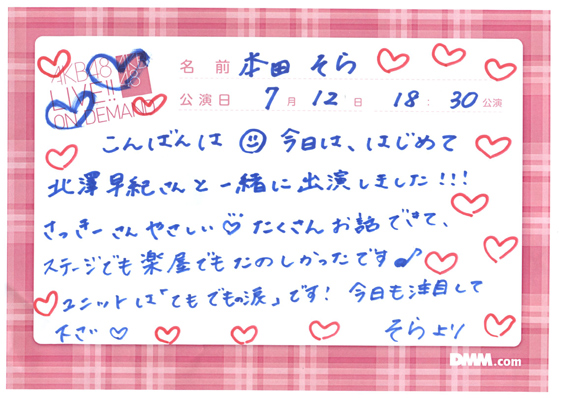 AKB48
LIVE!!
ON DEMAND
名 前 本田 そら
公演日 7月 12日 18:30公演
こんばんは 今日は、はじめて
北澤早紀さんと一緒に出演しました!!!
さっきーさんやさしい♡たくさんお話できて、
ステージでも楽屋でもたのしかったです♪
ユニットは「てもでもの涙」です! 今日も注目して
下さい♡ そらより
DMM.com